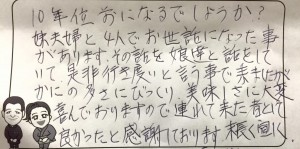 10年位前になるでしょうか?
妹夫婦と4人でお世話になった事
があります。その話を娘達と話をして
いて、是非行き度いと言う事で来ましたが
かにの多さにびっくり、美味しさに大変
喜んでおりますので連れて来た者として
良かったと感謝しております。